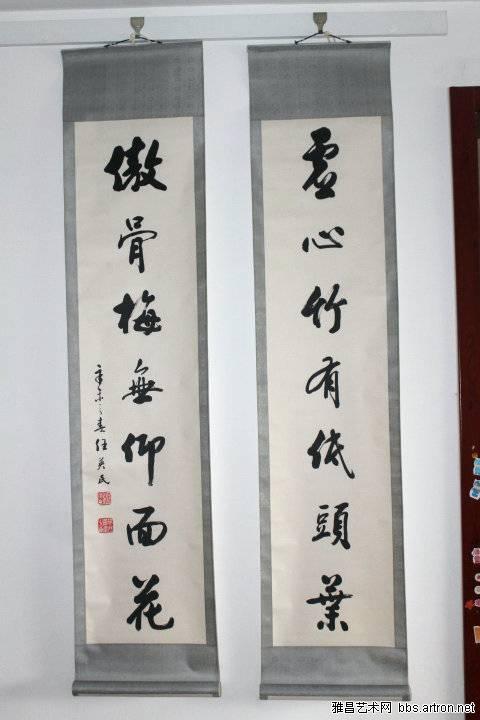 虛心竹有低頭葉
傲骨梅無仰面花
辛未之春任英民
雅昌艺术网 bbs.artron.net